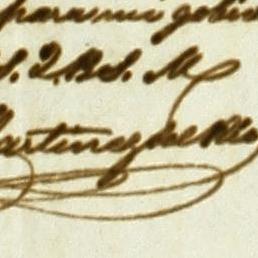 para mi gobie
S. Q. B. S. M.
Martinez del